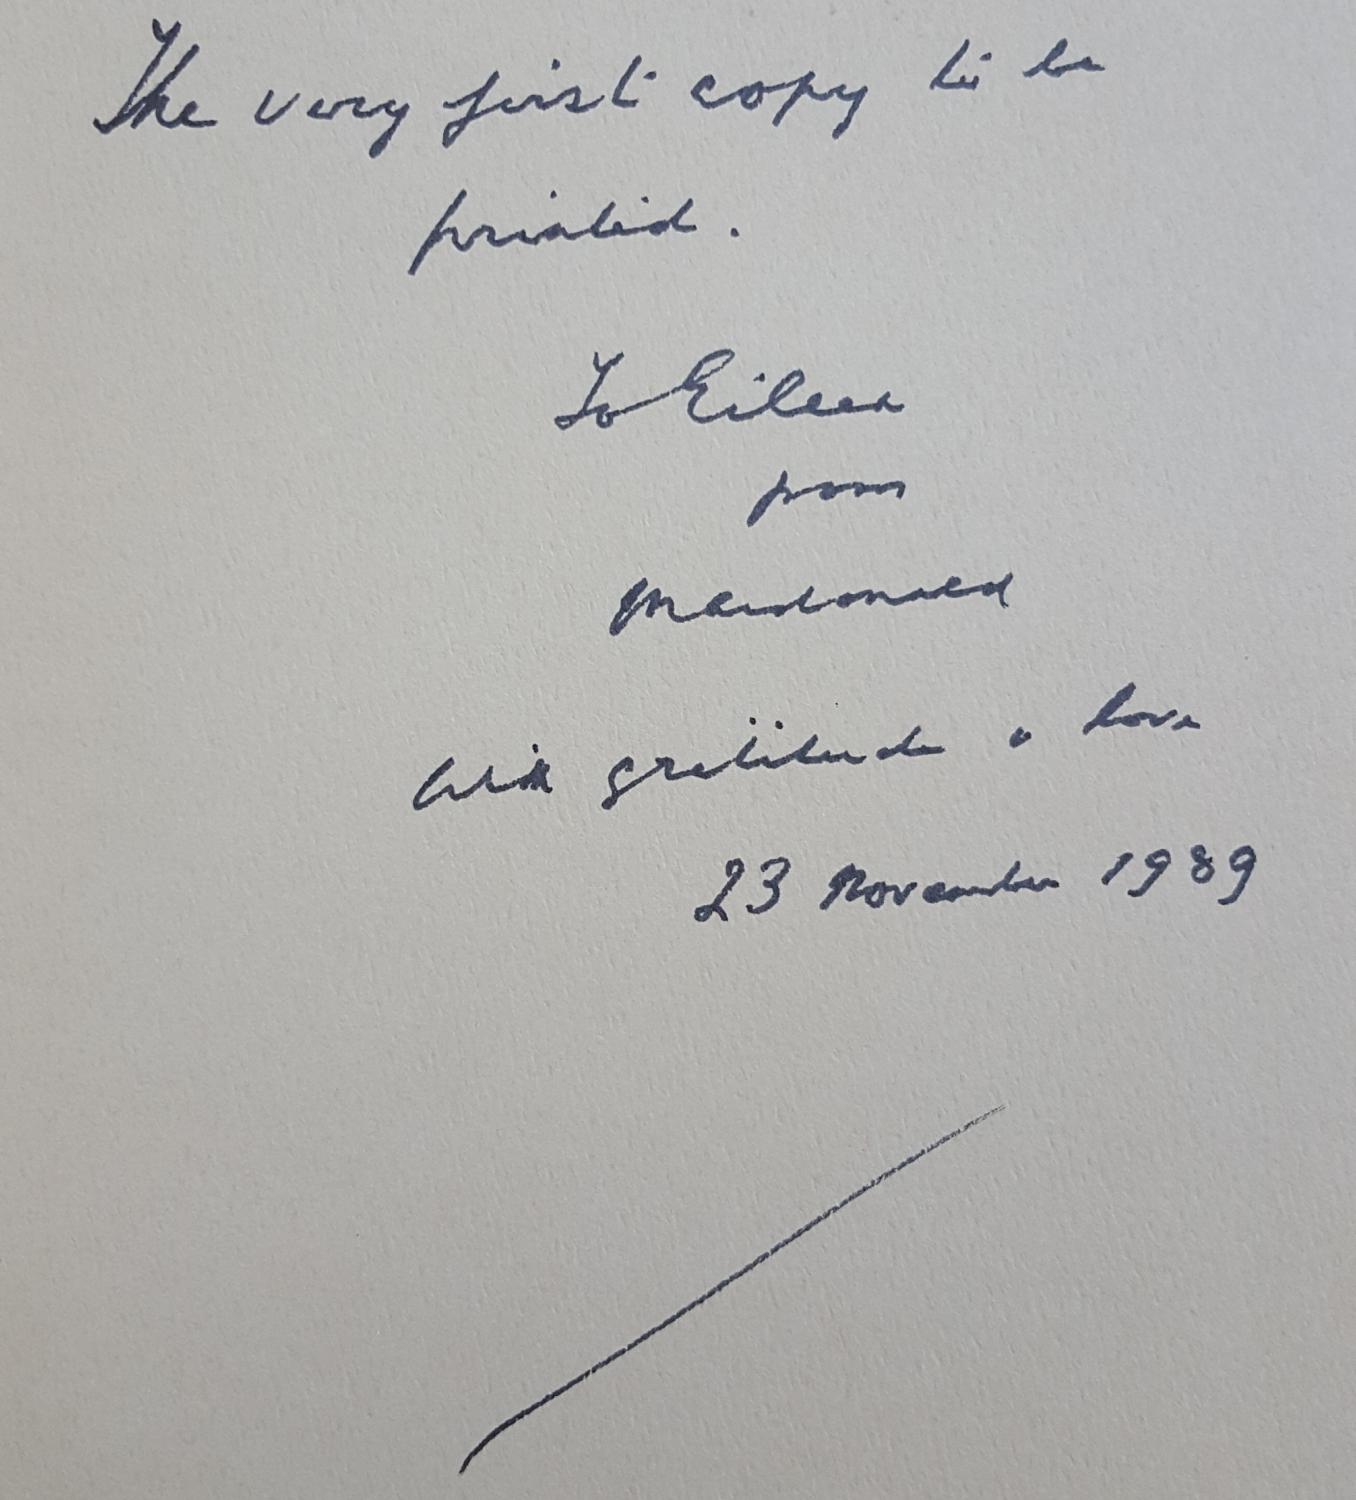 The very first copy to be
printed.
To Eileen
from
Macdonald
With gratitude & love
23 November 1989